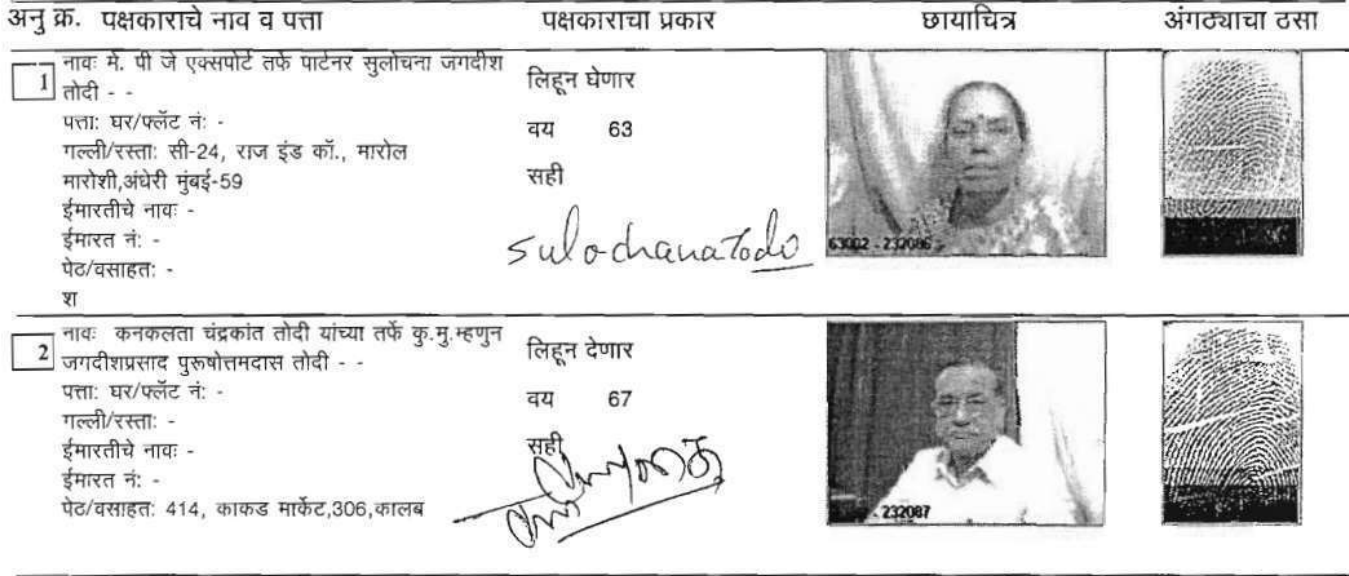 अनु क्र. पक्षकाराचे नाव व पत्ता पक्षकाराचा प्रकार छायाचित्र अंगठ्याचा ठसा
1 नावः मे. पी जे एक्सपोर्ट तर्फे पार्टनर सुलोचना जगदीश
तोदी - -
पत्ता: घर/फ्लॅट नं: -
गल्ली/रस्ता: सी-24, राज इंड कॉ., मारोल
मारोशी,अंधेरी मुंबई-59
ईमारतीचे नावः -
ईमारत नं: -
पेठ/वसाहत: -
श
लिहून घेणार
वय 63
सही
Sulochana Todi
63002 - 232086
2 नावः कनकलता चंद्रकांत तोदी यांच्या तर्फे कु.मु.म्हणुन
जगदीशप्रसाद पुरूषोत्तमदास तोदी - -
पत्ता: घर/फ्लॅट नं: -
गल्ली/रस्ता: -
ईमारतीचे नावः -
ईमारत नं: -
पेठ/वसाहत: 414, काकड मार्केट,306,कालब
लिहून देणार
वय 67
सही
- 232087